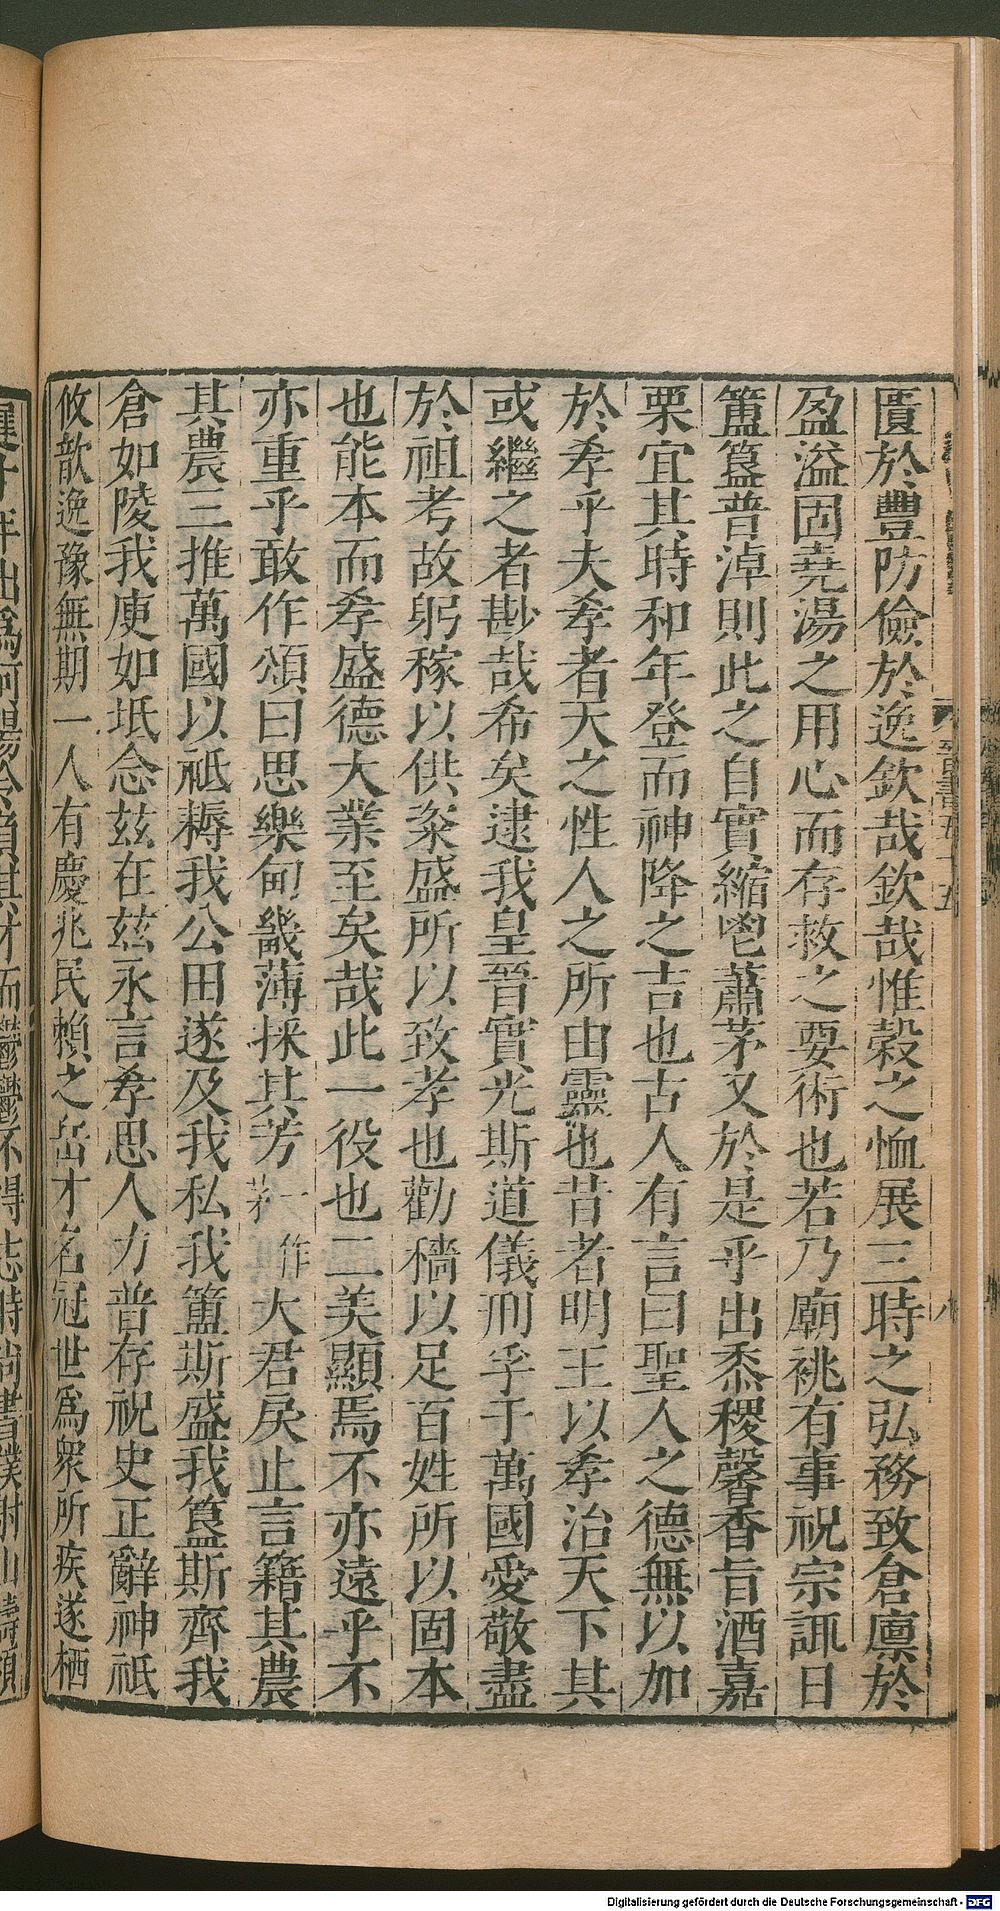 匱於豐防儉於逸欽哉欽哉惟穀之恤展三時之弘務致倉廩於
盈溢固堯湯之用心而存救之要術也若乃廟祧有事祝宗諏日
簠簋普淖則此之自實縮鬯蕭茅又於是乎出黍稷馨香旨酒嘉
栗宜其時和年登而神降之吉也古人有言曰聖人之德無以加
於孝乎夫孝者天之性人之所由靈也昔者明王以孝治天下其
或繼之者尠哉希矣逮我皇晉實光斯道儀刑孚于萬國愛敬盡
於祖考故躬稼以供粢盛所以致孝也勸穡以足百姓所以固本
也能本而孝盛德大業至矣哉此一役也二美顯焉不亦遠乎不
亦重乎敢作頌曰思樂甸畿薄採其芳一作茅大君戾止言籍其農
其農三推萬國以祗耨我公田遂及我私我簠斯盛我簋斯齊我
倉如陵我庾如坻念茲在茲永言孝思人力普存祝史正辭神祇
攸歆逸豫無期一人有慶兆民賴之岳才名冠世爲衆所疾遂栖
晉書五十五
八
Digitalisierung gefördert durch die Deutsche Forschungsgemeinschaft - DFG